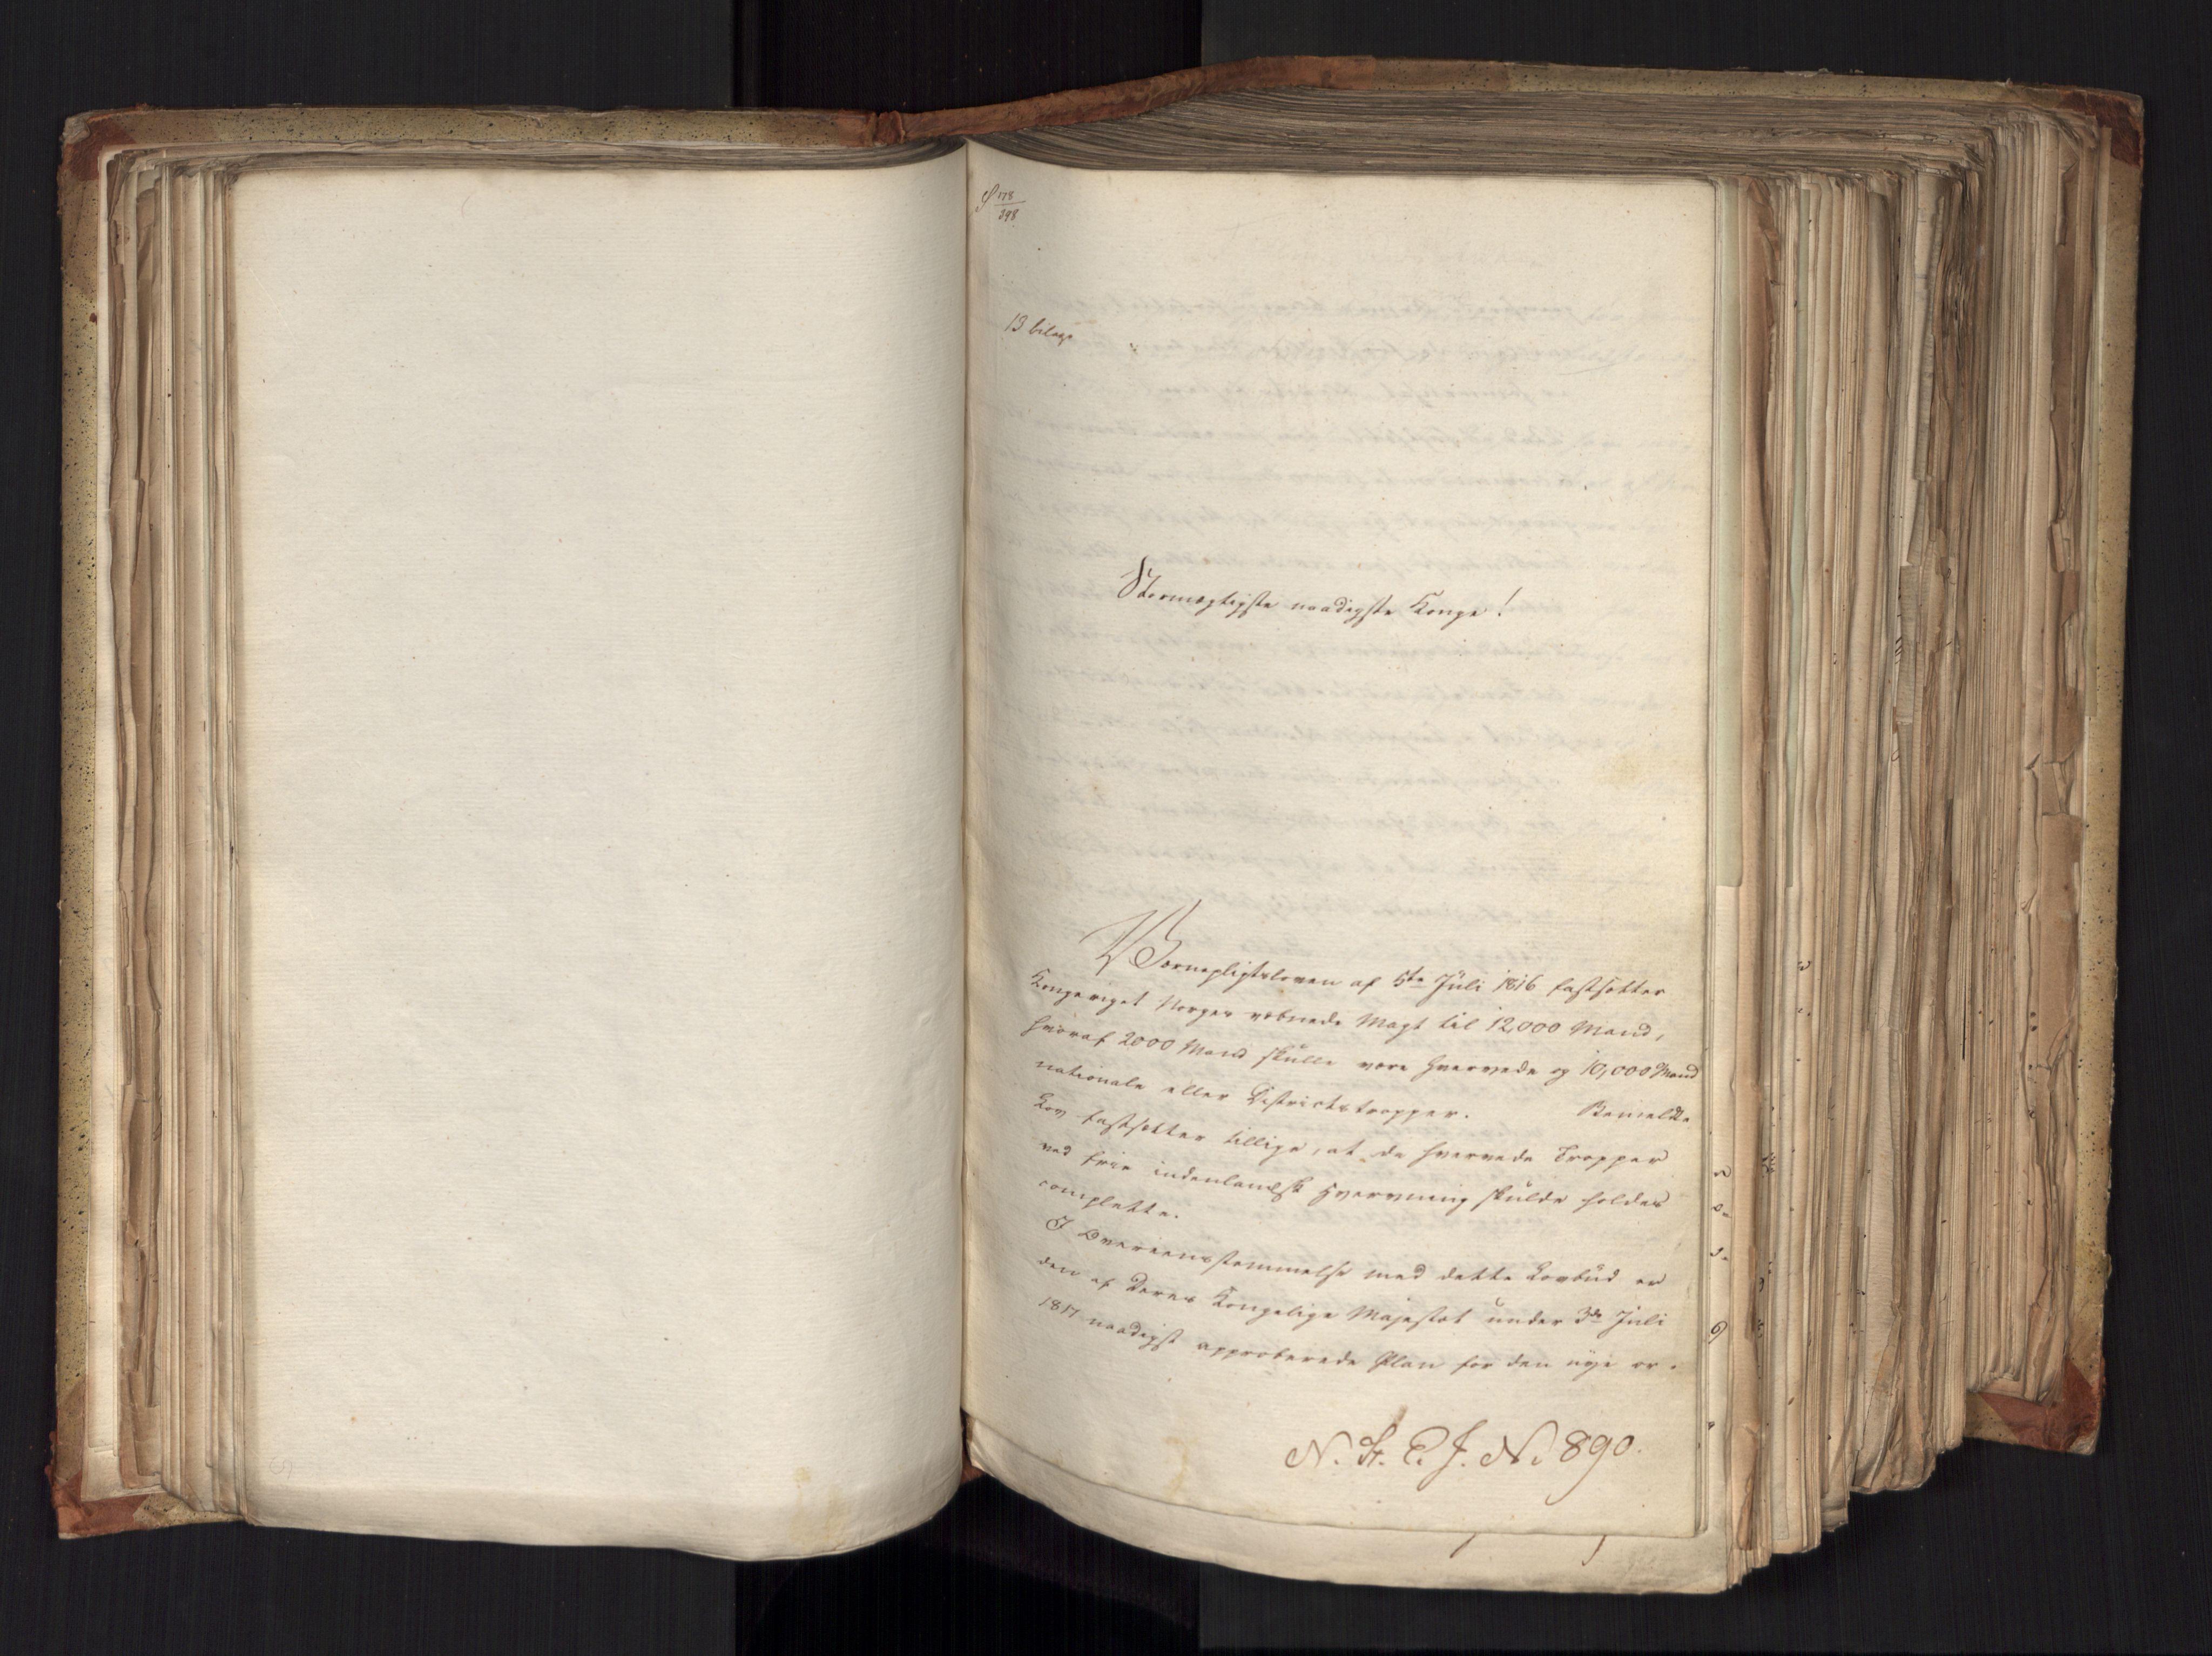 178
298
13 bilage
Stormægtigste naadigste Konge!
Værnepligtsloven af 5te Juli 1816 fastsætter
Kongeriget Norges væbnede Magt til 12,000 Mand,
hvoraf 2000 Mand skulle være hvervede og 10,000 Mand
nationale eller Districtstropper. Bemeldte
Lov fastsætter tillige, at de hvervede Tropper
ved frie indenlandsk Hvervning skulde holdes
complette.
I Overeensstemmelse med dette Lovbud er
den af Deres Kongelige Majestæt under 3de Juli
1817 naadigst approberede Plan for den nye or-
N. St. E. J. No 890.